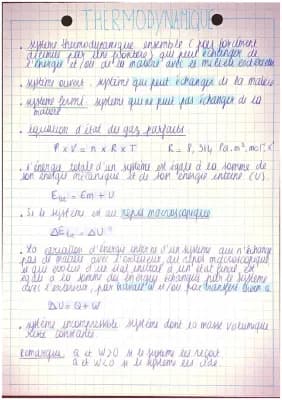 THERMODYNAMIQUE
• système thermodynamique ensemble (pas forcément
par une frontière) qui peut échanger de
l'énergie et/ou de la matière avec le milieu extérieur
• système ouvert : système qui peut échanger de la matière
• système fermé : système qui ne peut pas échanger de la
matière
• équation d'état des gaz parfaits
P x V = n x R x T R = 8,314 Pa.m³.mol⁻¹.K⁻¹
• l'énergie totale d'un système est égale à la somme de
son énergie mécanique et de son énergie interne (U).
Etot = Em + U
• Si le système est au repos macroscopique
ΔEtot = ΔU
• La variation d'énergie interne d'un système qui n'échange
pas de matière avec l'extérieur, au repos macroscopique
et qui évolue d'un état initial à un état final est
égale à la somme des énergies échangées par le système
avec l'extérieur, par travail W et/ou par transfert therm Q
ΔU = Q + W
• système incompressible système dont la masse volumique
reste constante
Remarque Q et W > 0 si le système les reçoit
Q et W < 0 si le système les cède.